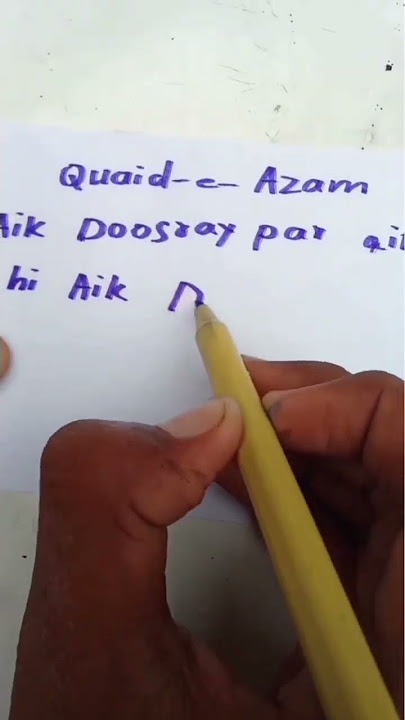 Quaid-e-Azam
Aik Doosray par
hi Aik D